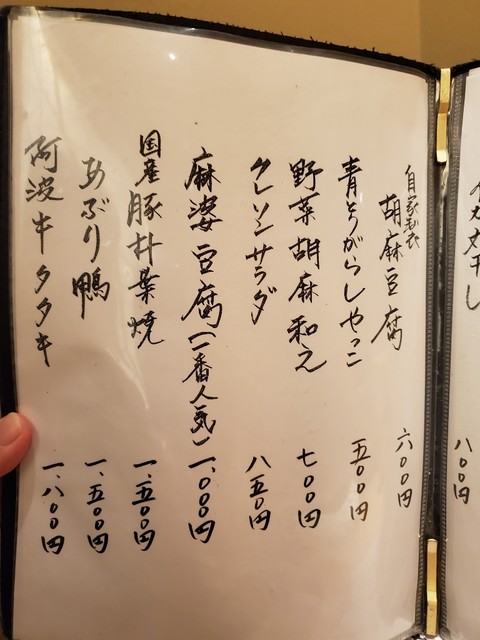 自家製
胡麻豆腐 六〇〇円
青とうがらしやっこ 五〇〇円
野菜胡麻和え 七〇〇円
クレソンサラダ 八五〇円
麻婆豆腐(一番人気) 一、〇〇〇円
国産豚朴葉焼 一、五〇〇円
あぶり鴨 一、五〇〇円
阿波牛タタキ 一、八〇〇円
八〇〇円